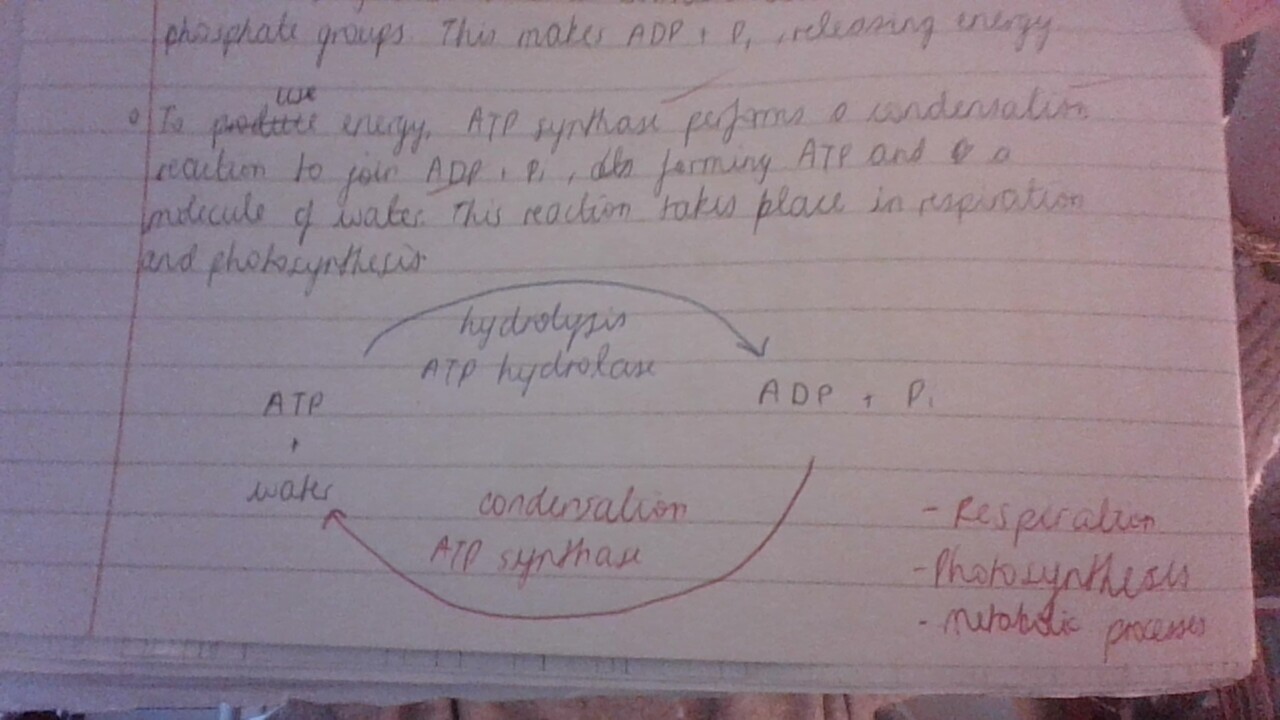 phosphate groups. This makes ADP + Pi, releasing energy
use
To produce energy, ATP synthase performs a condensation
reaction to join ADP + Pi, forming ATP and a
molecule of water. This reaction takes place in respiration
and photosynthesis
hydrolysis
ATP hydrolase
ATP
+
water
ADP + Pi
condensation
ATP synthase
- Respiration
- Photosynthesis
- metabolic processes